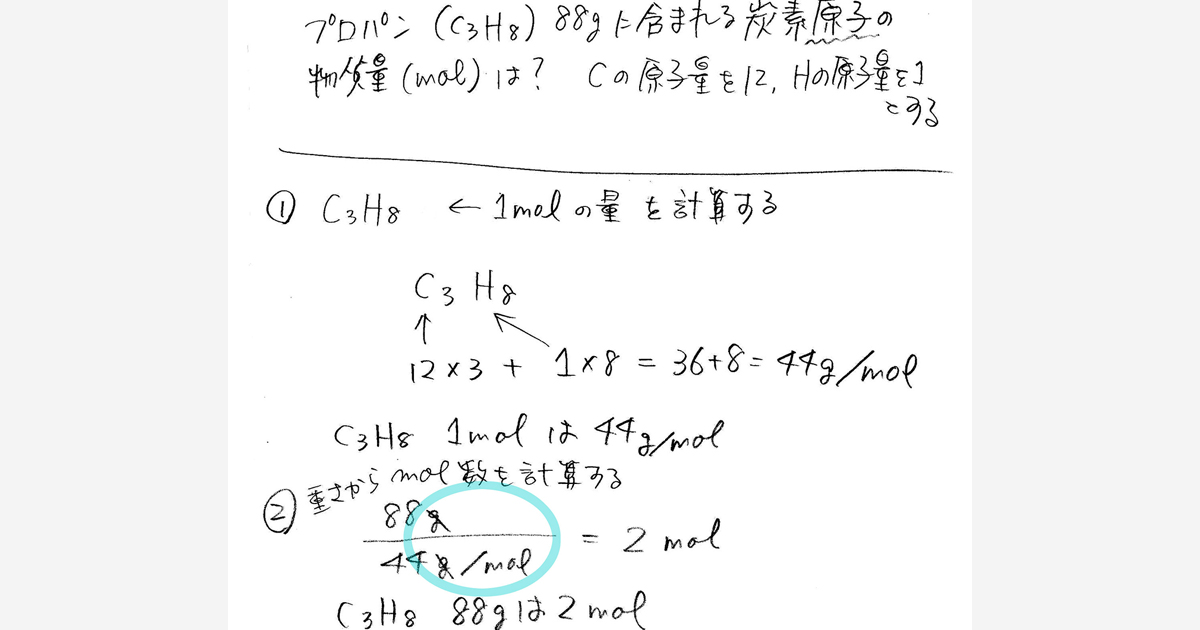 プロパン (C3H8) 88gに含まれる炭素原子の
物質量(mol)は? Cの原子量を12, Hの原子量を1
とする
① C3H8 ← 1molの量を計算する
C3 H8
↑ ↖
12×3 + 1×8 = 36+8 = 44g/mol
C3H8 1molは44g/mol
② 重さからmol数を計算する
88g
44g/mol = 2 mol
C3H8 88gは2mol